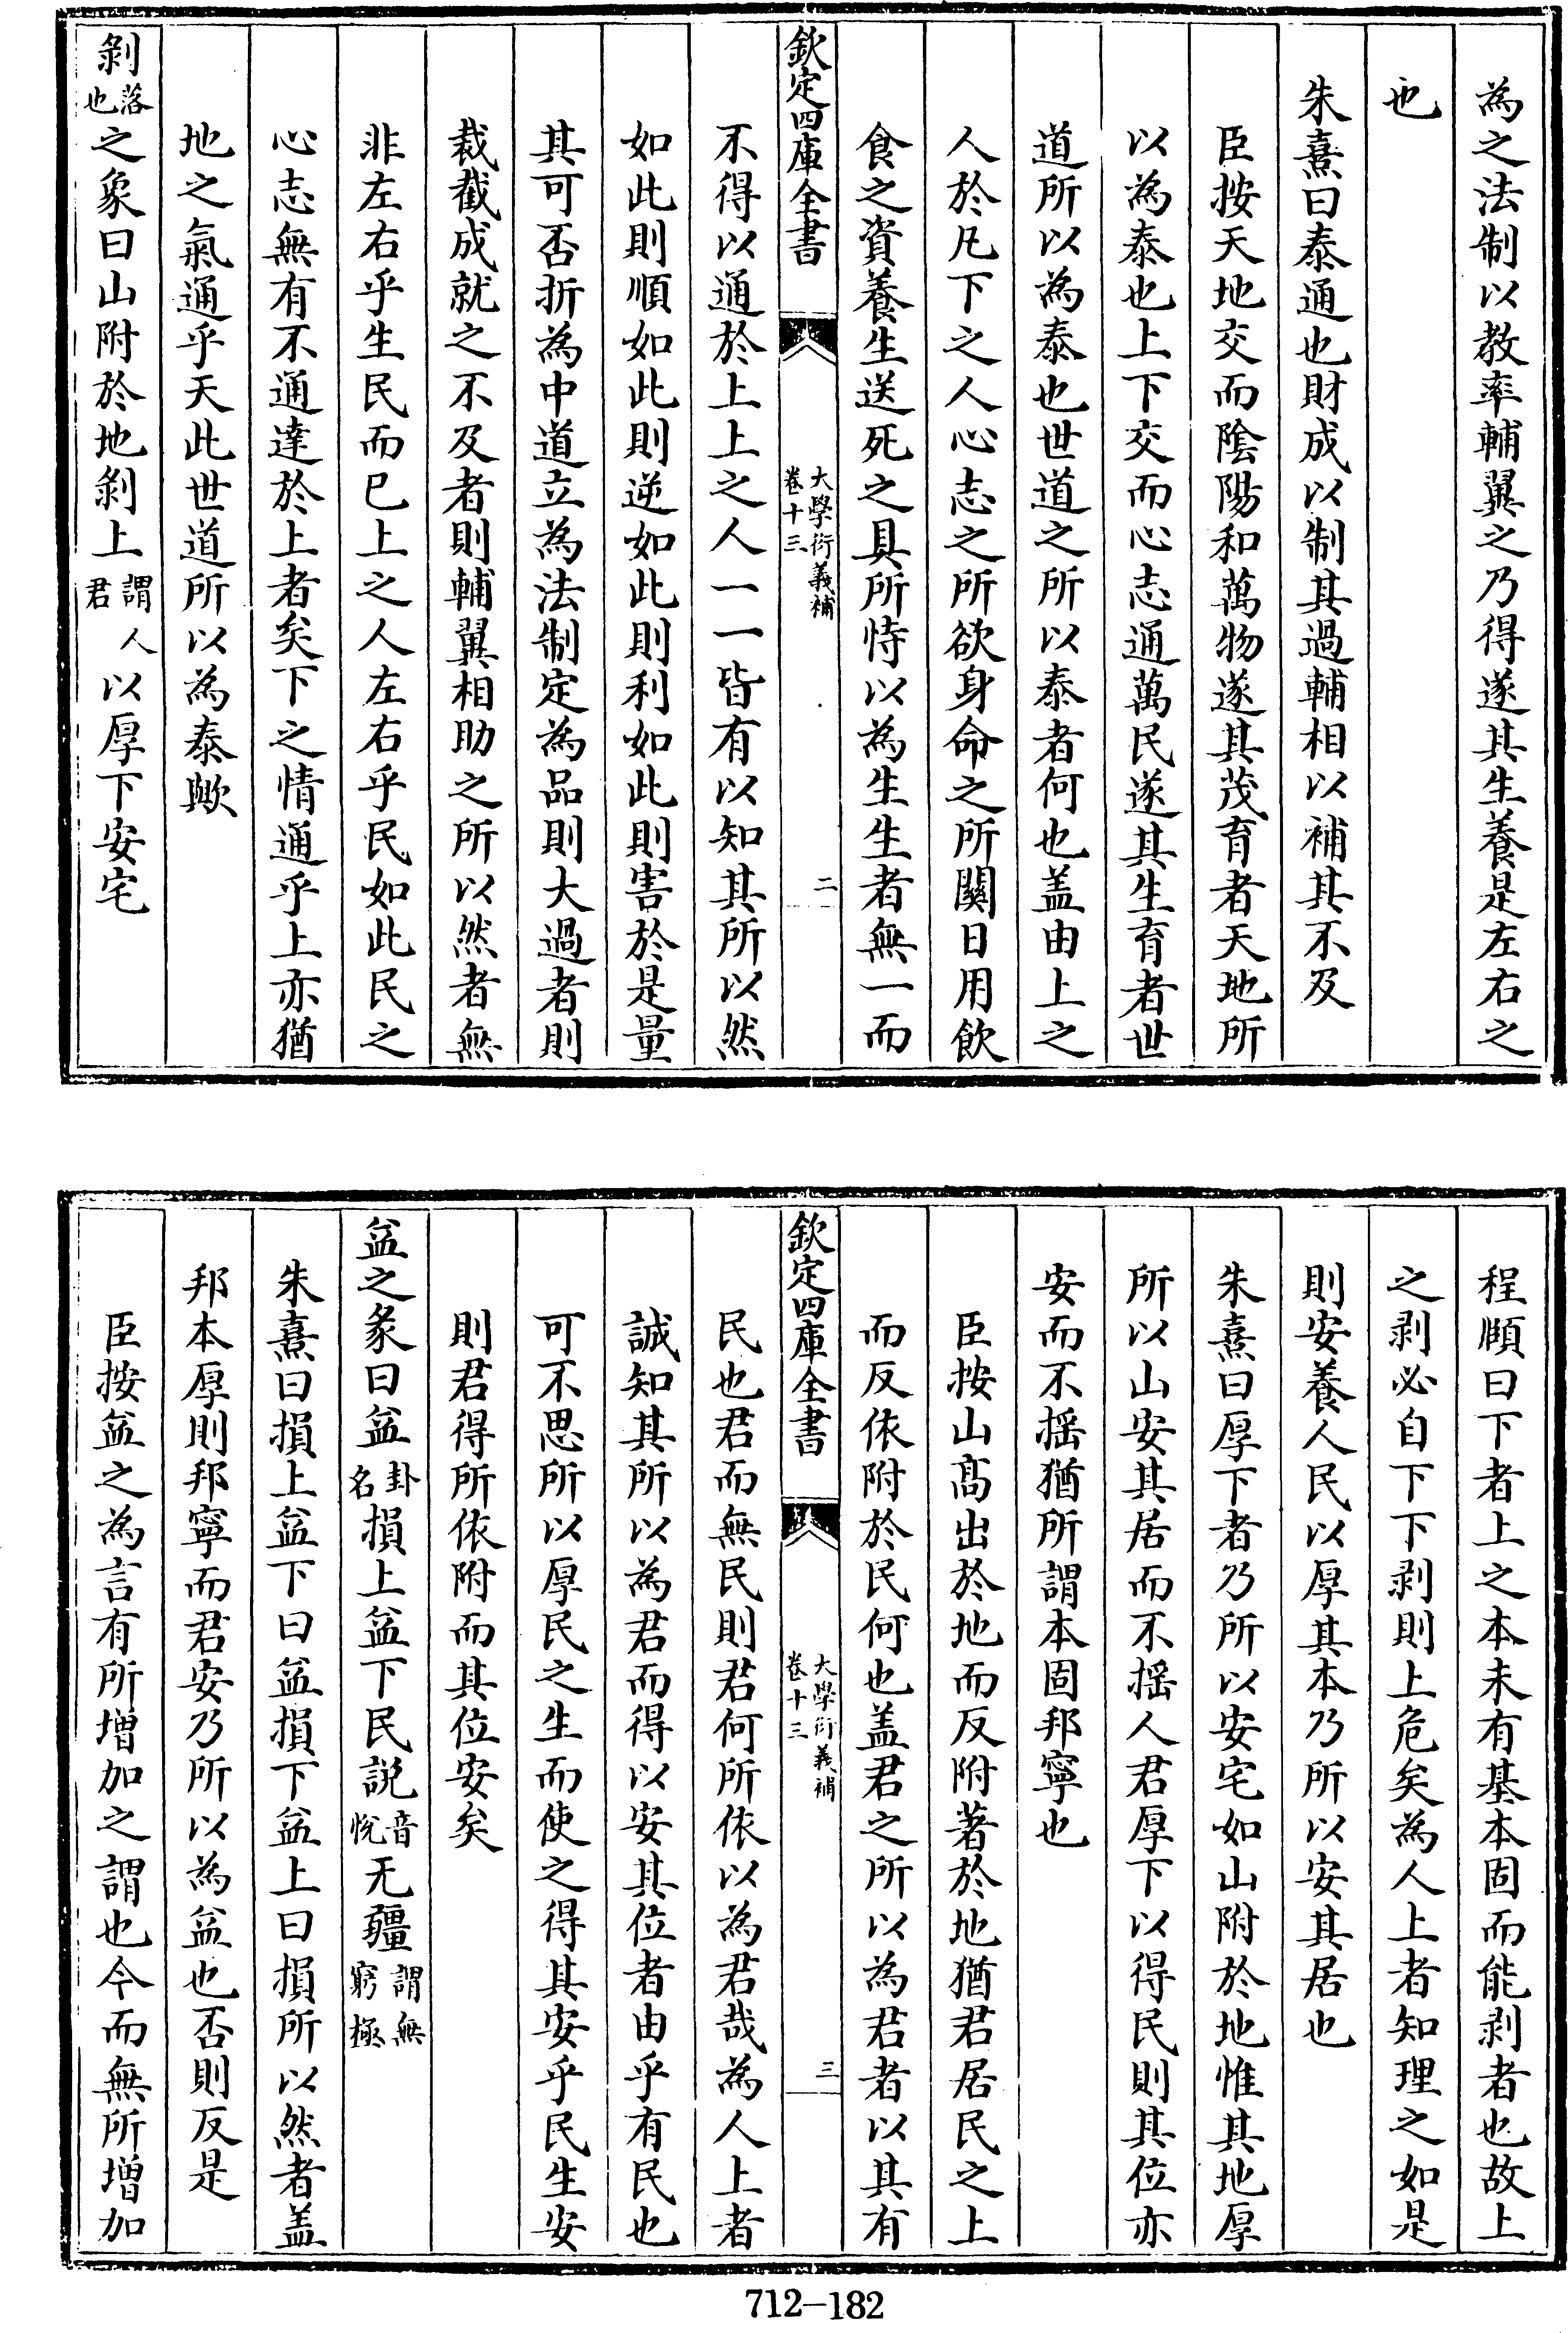 為之法制以教率輔翼之乃得遂其生養是左右之
也
朱熹曰泰通也財成以制其過輔相以補其不及
臣按天地交而陰陽和萬物遂其茂育者天地所
以為泰也上下交而心志通萬民遂其生育者世
道所以為泰也世道之所以泰者何也盖由上之
人於凡下之人心志之所欲身命之所關日用飲
食之資養生送死之具所恃以為生生者無一而
欽定四庫全書
大學衍義補
卷十三
二
不得以通於上上之人一一皆有以知其所以然
如此則順如此則逆如此則利如此則害於是量
其可否折為中道立為法制定為品則大過者則
裁截成就之不及者則輔翼相助之所以然者無
非左右乎生民而已上之人左右乎民如此民之
心志無有不通達於上者矣下之情通乎上亦猶
地之氣通乎天此世道所以為泰歟
剝落也之象曰山附於地剝上謂人君以厚下安宅
程頤曰下者上之本未有基本固而能剥者也故上
之剥必自下下剥則上危矣為人上者知理之如是
則安養人民以厚其本乃所以安其居也
朱熹曰厚下者乃所以安宅如山附於地惟其地厚
所以山安其居而不揺人君厚下以得民則其位亦
安而不揺猶所謂本固邦寧也
臣按山髙出於地而反附著於地猶君居民之上
而反依附於民何也盖君之所以為君者以其有
欽定四庫全書
大學衍義補
卷十三
三
民也君而無民則君何所依以為君哉為人上者
誠知其所以為君而得以安其位者由乎有民也
可不思所以厚民之生而使之得其安乎民生安
則君得所依附而其位安矣
益之彖曰益卦名損上益下民説音悅无疆謂無窮極
朱熹曰損上益下曰益損下益上曰損所以然者盖
邦本厚則邦寧而君安乃所以為益也否則反是
臣按益之為言有所增加之謂也今而無所增加
712-182